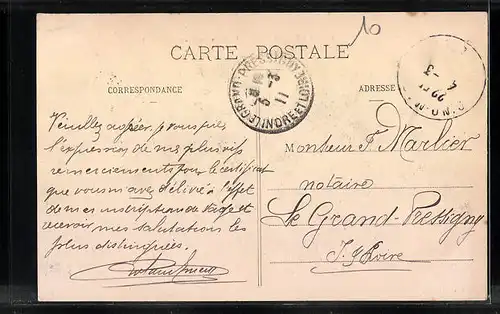 10
CARTE POSTALE
CORRESPONDANCE
ADRESSE
LE GRAND-PRESSIGNY INDRE ET LOIRE
11
Veuillez agréer, je vous prie
l'expression de mes plus vifs
remerciements pour le certificat
que vous m'avez délivré à l'effet
de mes inscriptions de stage et
recevoir mes salutations les
plus distinguées.
Monsieur F. Marlier
notaire
Le Grand-Pressigny
I. & Loire